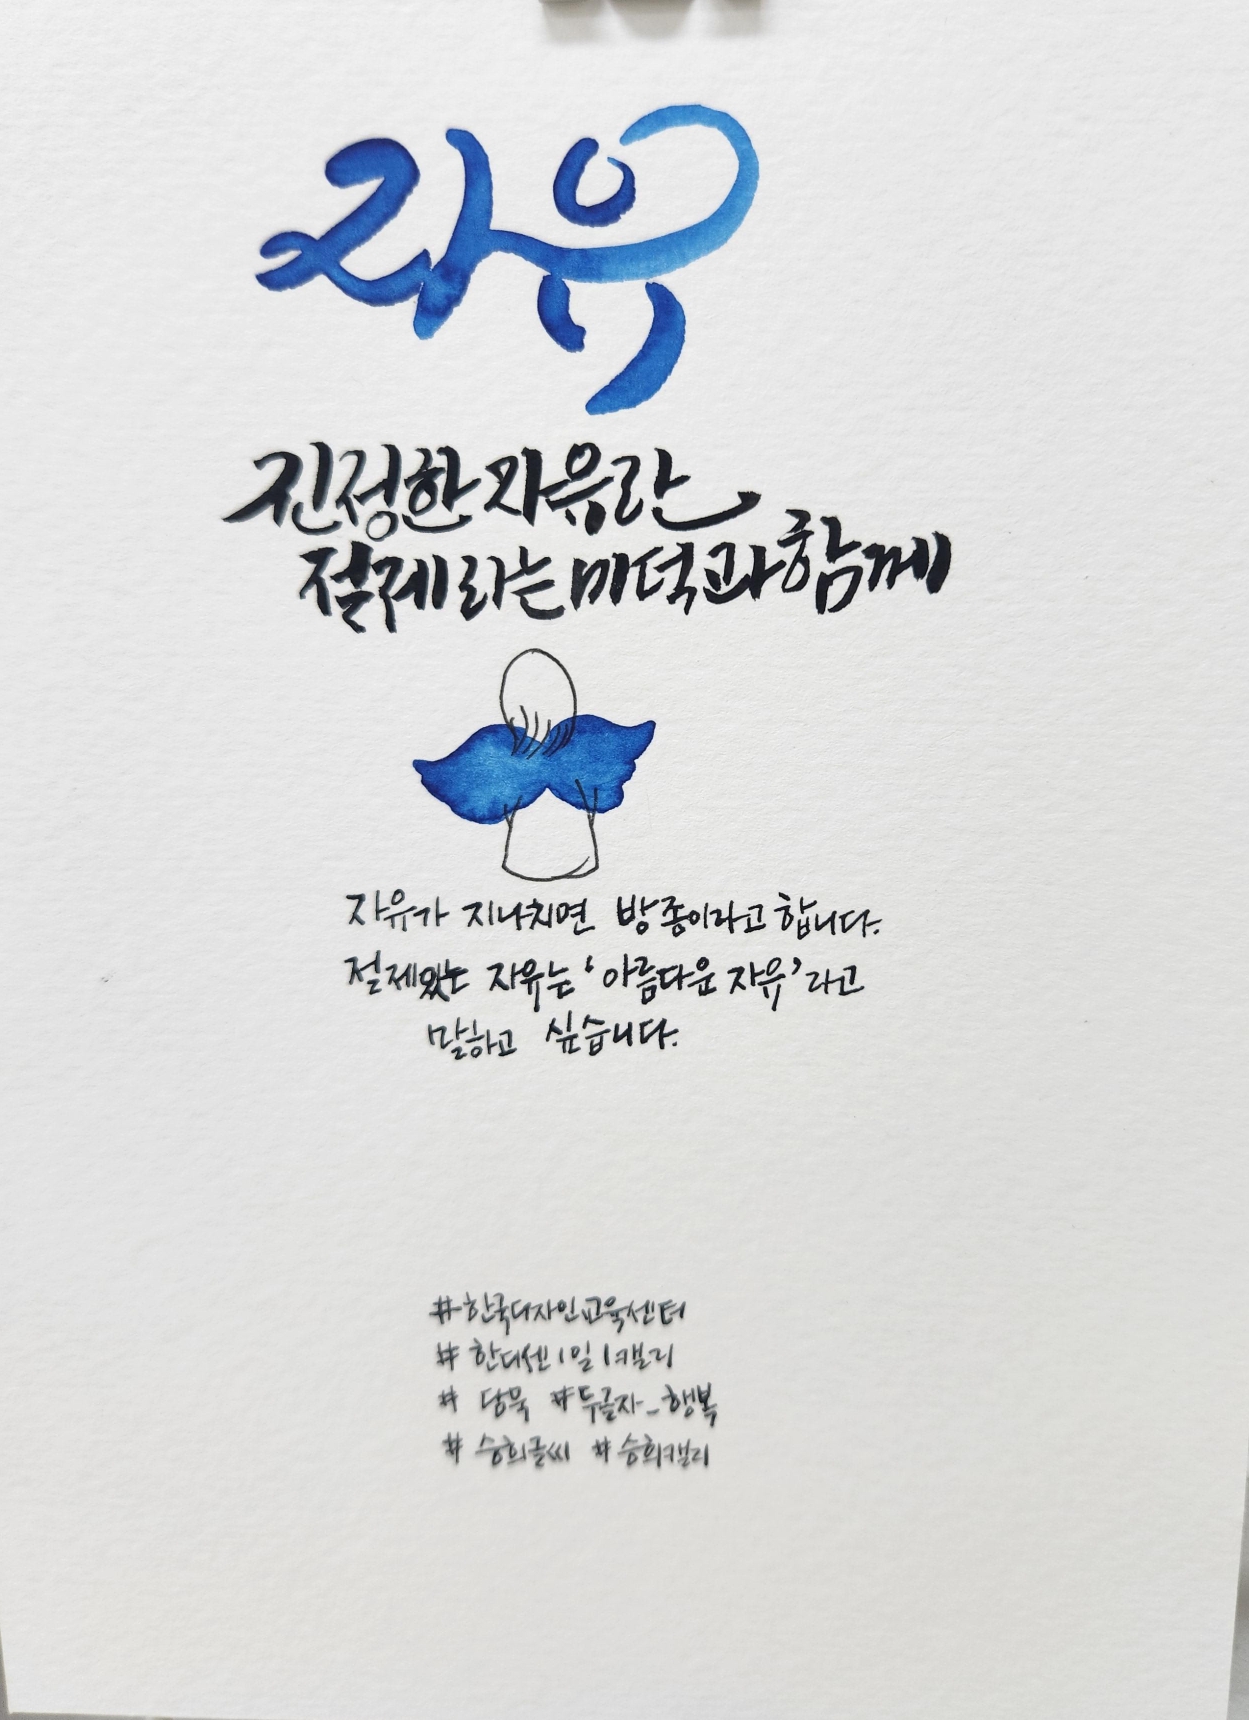 자유
진정한 자유란
절제라는 미덕과 함께
자유가 지나치면 방종이라고 합니다.
절제있는 자유는 '아름다운 자유'라고
말하고 싶습니다.
#한국디자인교육센터
# 한디센1일1캘리
# 당묵 #두글자_행복
# 승희글씨 # 승희캘리